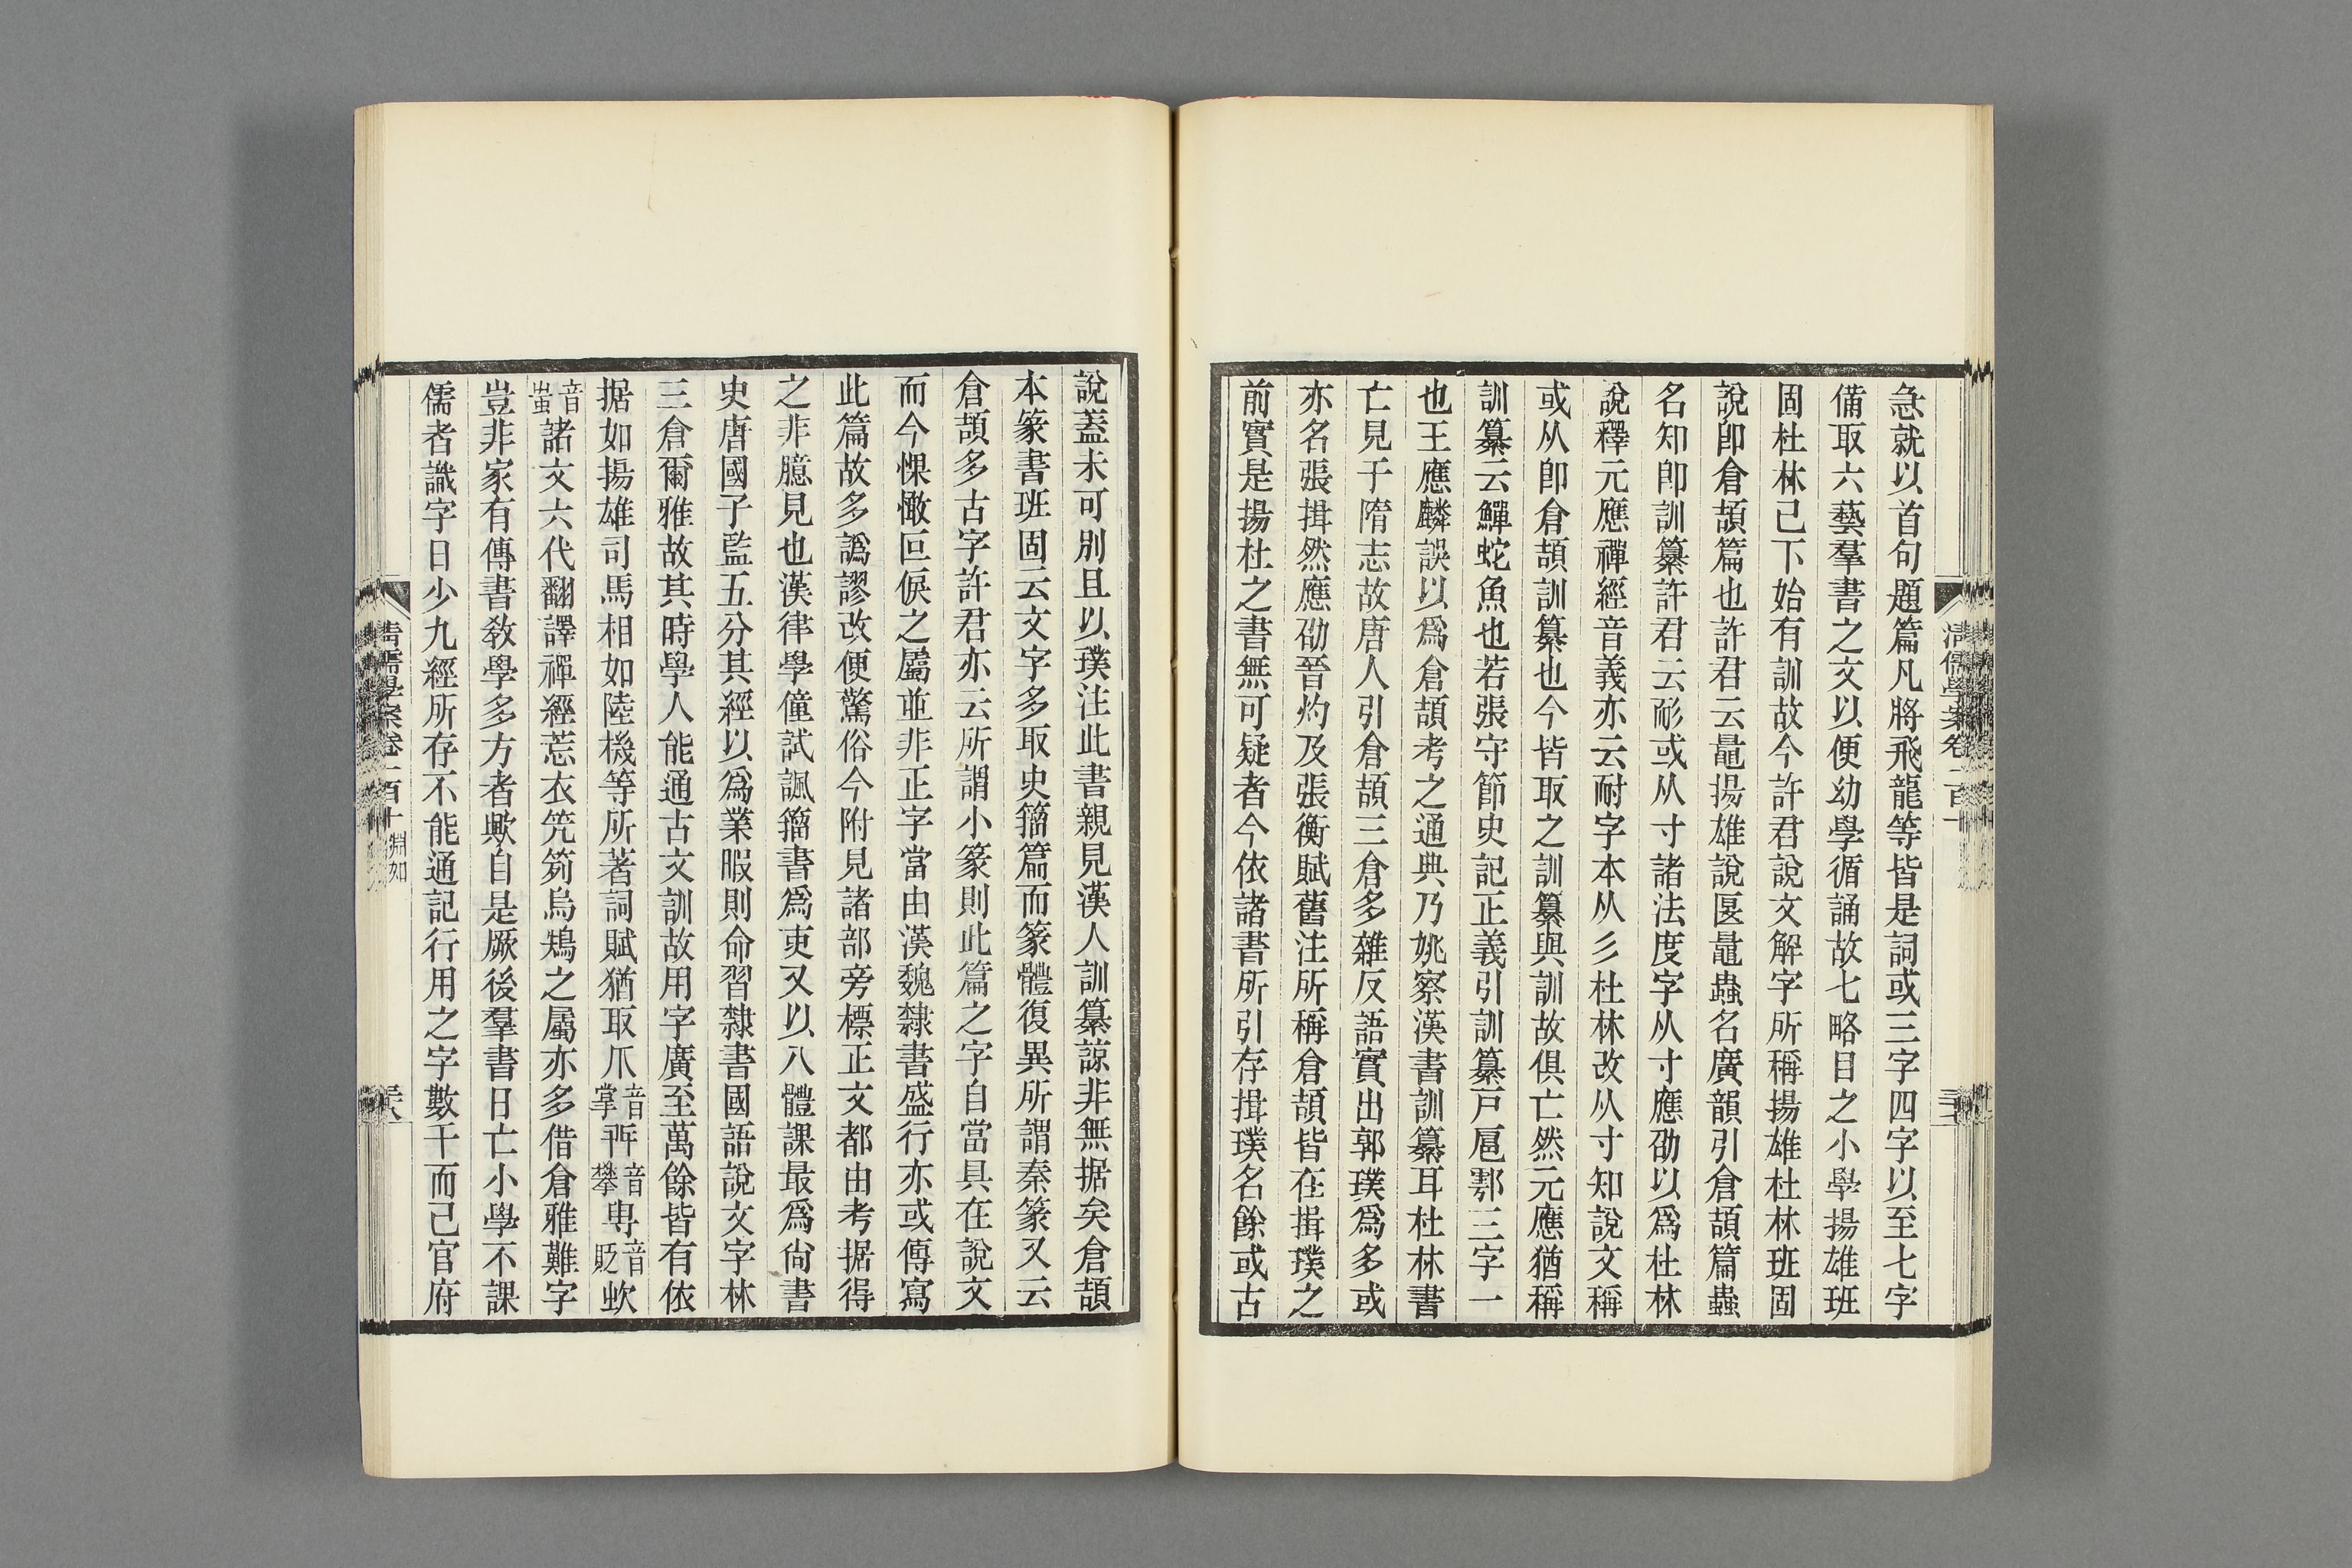 急就以首句題篇凡將飛龍等皆是詞或三字四字以至七字
備取六藝羣書之文以便幼學循誦故七略目之小學揚雄班
固杜林已下始有訓故今許君說文解字所稱揚雄杜林班固
說卽倉頡篇也許君云鼂揚雄說匽鼂蟲名廣韻引倉頡篇蟲
名知卽訓纂許君云耏或从寸諸法度字从寸應劭以爲杜林
說釋元應禪經音義亦云耐字本从彡杜林改从寸知說文稱
或从卽倉頡訓纂也今皆取之訓纂與訓故俱亡然元應猶稱
訓纂云鱓蛇魚也若張守節史記正義引訓纂戸扈鄠三字一
也王應麟誤以爲倉頡考之通典乃姚察漢書訓纂耳杜林書
亡見于隋志故唐人引倉頡三倉多雜反語實出郭璞爲多或
亦名張揖然應劭晉灼及張衡賦舊注所稱倉頡皆在揖璞之
前實是揚杜之書無可疑者今依諸書所引存揖璞名餘或古
說蓋未可別且以璞注此書親見漢人訓纂諒非無据矣倉頡
本篆書班固云文字多取史籀篇而篆體復異所謂秦篆又云
倉頡多古字許君亦云所謂小篆則此篇之字自當具在說文
而今惈憿叵俽之屬並非正字當由漢魏隸書盛行亦或傳寫
此篇故多譌謬改便驚俗今附見諸部旁標正文都由考据得
之非臆見也漢律學僮試諷籀書爲吏又以八體課最爲尙書
史唐國子監五分其經以爲業暇則命習隸書國語說文字林
三倉爾雅故其時學人能通古文訓故用字廣至萬餘皆有依
据如揚雄司馬相如陸機等所著詞賦猶取爪音掌𠬜音攀𠭥音貶蚥
音蚩諸文六代翻譯禪經䓤衣竼笍烏鴆之屬亦多借倉雅難字
豈非家有傳書教學多方者歟自是厥後羣書日亡小學不課
儒者識字日少九經所存不能通記行用之字數千而已官府
清儒學案卷一百十 淵如